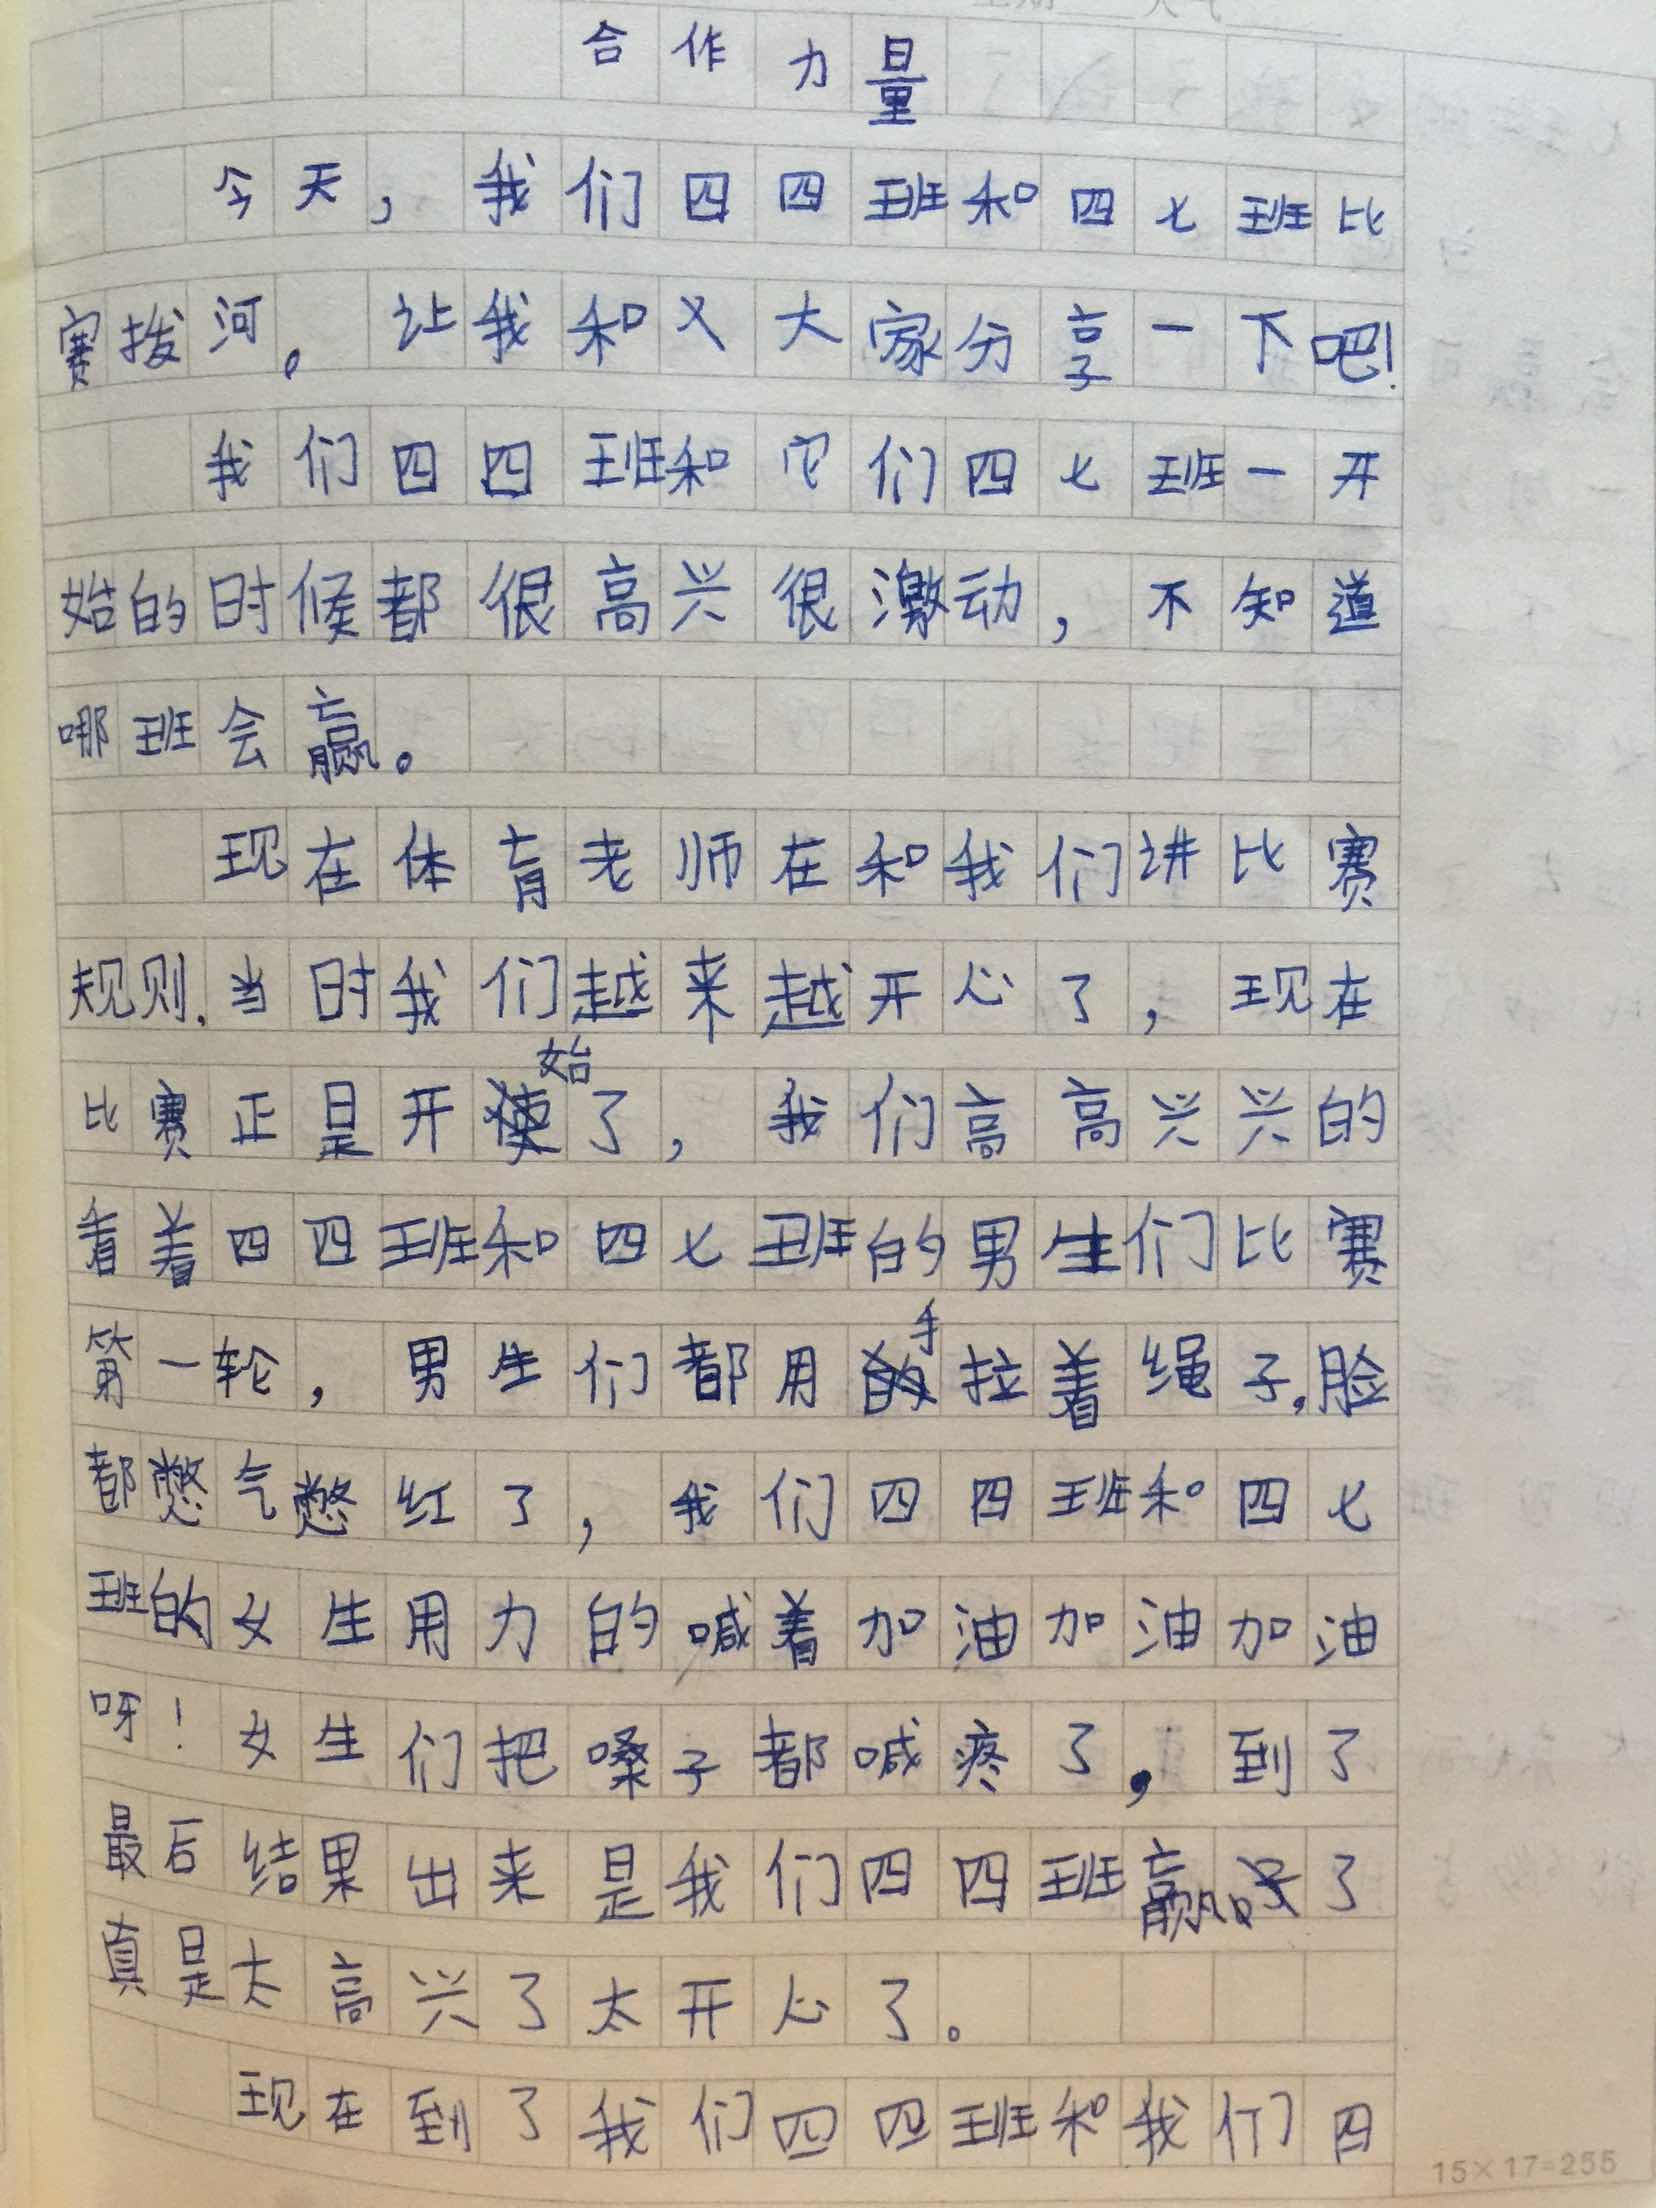 合作力量
今天，我们四四班和四七班比
赛拨河。让我和又大家分享一下吧！
我们四四班和它们四七班一开
始的时候都很高兴很激动，不知道
哪班会赢。
现在体育老师在和我们讲比赛
规则.当时我们越来越开心了，现在
比赛正是开始了，我们高高兴兴的
看着四四班和四七班的男生们比赛
第一轮，男生们都用手拉着绳子，脸
都憋气憋红了，我们四四班和四七
班的女生用力的喊着加油加油加油
呀！女生们把嗓子都喊疼了，到了
最后结果出来是我们四四班赢了
真是太高兴了太开心了。
现在到了我们四四班和我们四
15×17=255